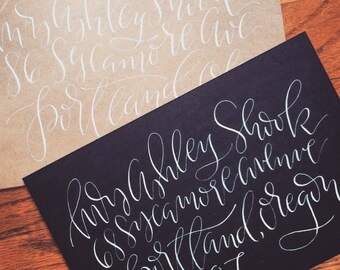 Mrs Ashley Shook
86 Sycamore Ave
Portland
Mrs Ashley Shook
68 Sycamore Avenue
Portland, Oregon